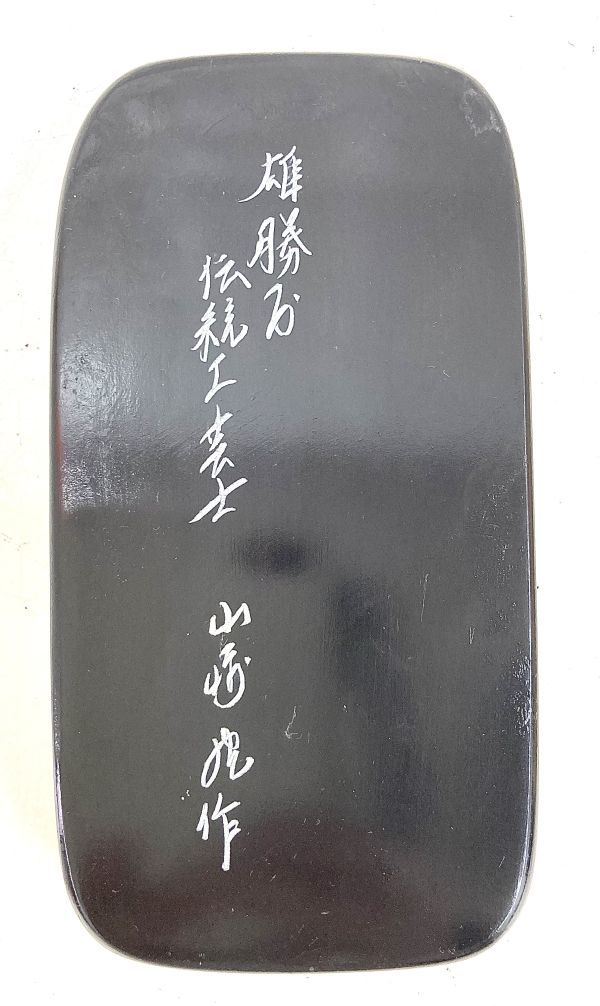 雄勝石
伝統工芸士 山崎 作